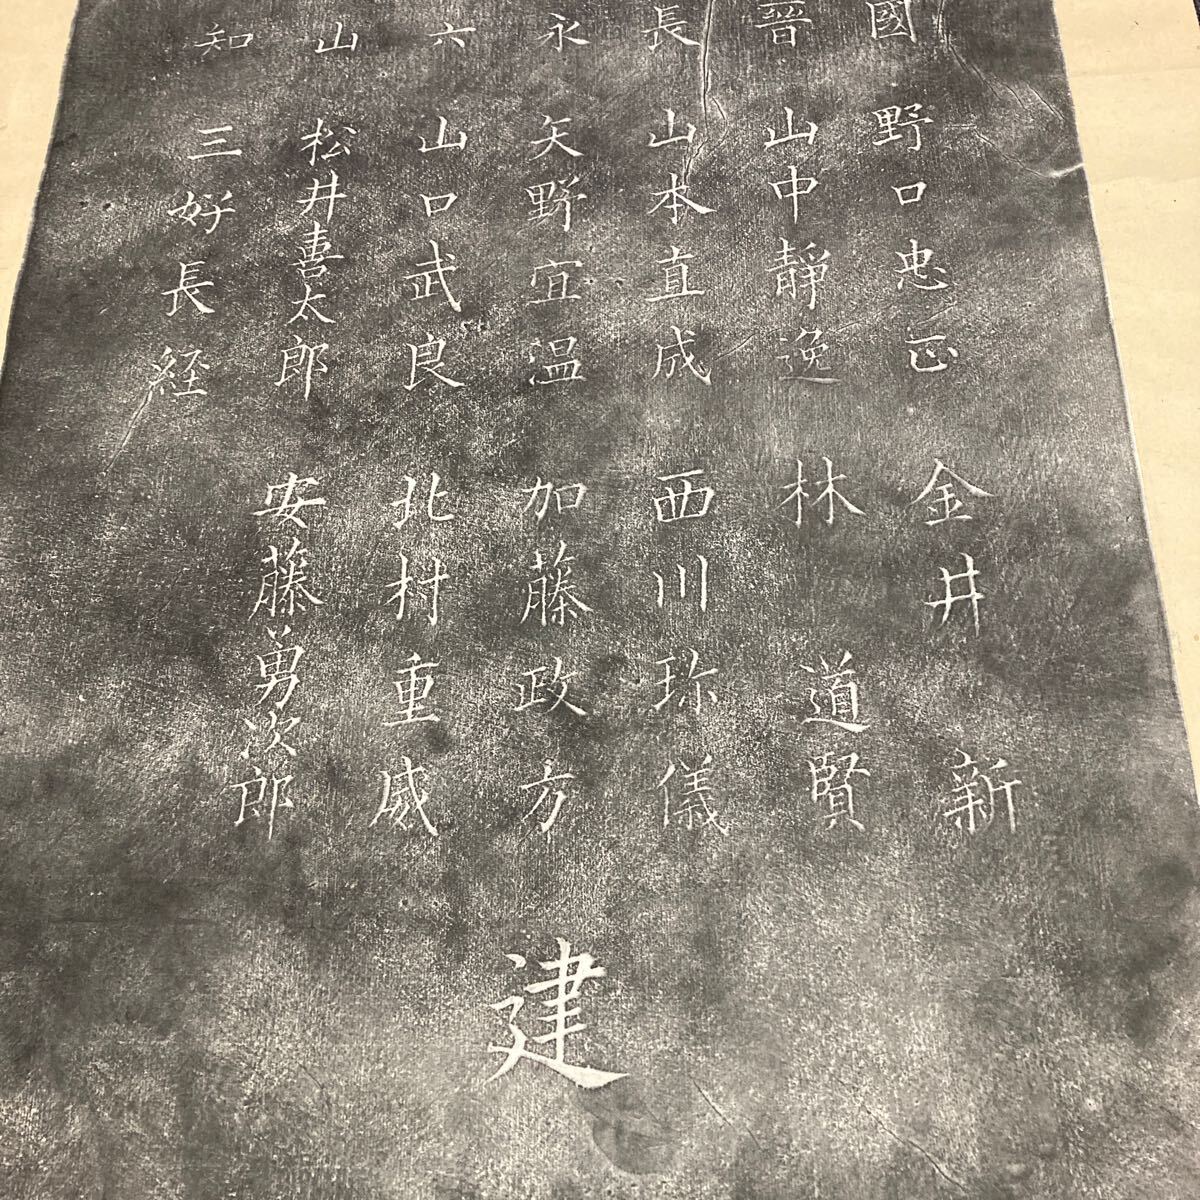 國 野口忠正 金井 新
晉 山中靜逸 林 道賢
長 山本直成 西川珎儀
永 矢野宜温 加藤政方
六 山口武良 北村重威
山 松井喜太郎 安藤勇次郎
知 三好長経
建